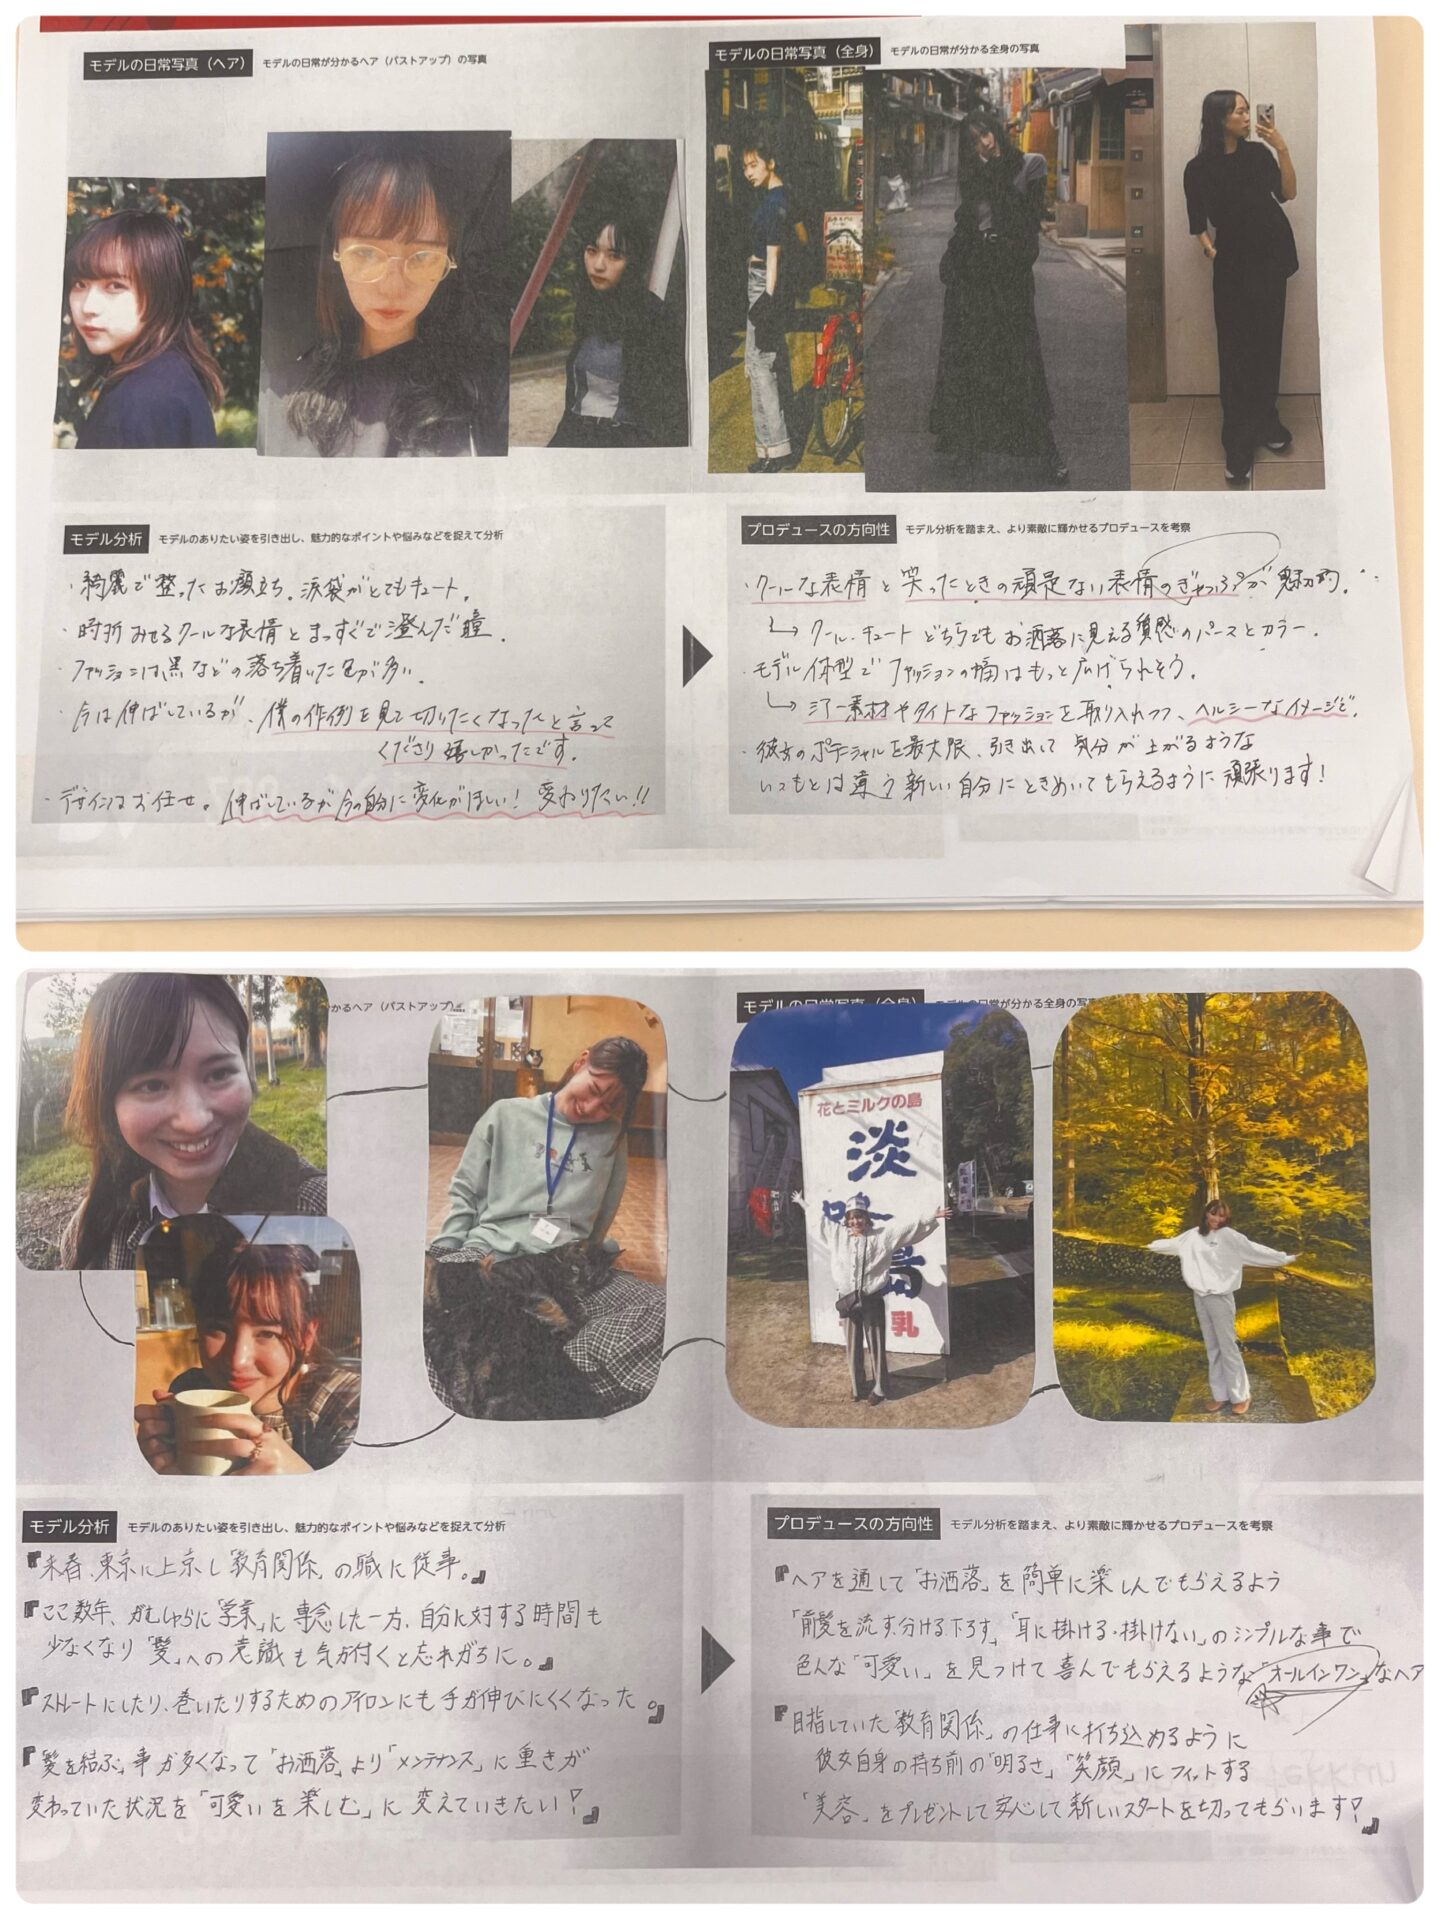 モデルの日常写真（ヘア） モデルの日常が分かるヘア（バストアップ）の写真
モデルの日常写真（全身） モデルの日常が分かる全身の写真
モデル分析 モデルのありたい姿を引き出し、魅力的なポイントや悩みなどを捉えて分析
・綺麗で整ったお顔立ち。涙袋がとてもキュート。
・時折みせるクールな表情とまっすぐで澄んだ瞳。
・ファッションは黒などの落ち着いた色が多い。
・今は伸ばしているが、僕の作例を見て切りたくなったと言って
くださり嬉しかったです。
・デザインはお任せ。伸ばしているが今の自分に変化がほしい！変わりたい!!
プロデュースの方向性 モデル分析を踏まえ、より素敵に輝かせるプロデュースを考察
・クールな表情と笑ったときの頑是ない表情のぎゃっぷが魅力的。
↳クール、キュートどちらでもお洒落に見える質感のパースとカラー。
・モデル体型でファッションの幅はもっと広げられそう。
↳シアー素材やタイトなファッションを取り入れつつ、ヘルシーなイメージで。
・彼女のポテンシャルを最大限、引き出して気分が上がるような
いつもとは違う新しい自分にときめいてもらえるように頑張ります！
かるヘア（バストアップ）
モデルの日常写真（全身） モデルの日常が分かる全身の写真
花とミルクの島
淡
島
乳
モデル分析 モデルのありたい姿を引き出し、魅力的なポイントや悩みなどを捉えて分析
『来春、東京に上京し「教育関係」の職に従事。』
『ここ数年、がむしゃらに「学業」に専念した一方、自分に対する時間も
少なくなり「髪」への意識も気が付くと忘れがちに。』
『ストレートにしたり、巻いたりするためのアイロンにも手が伸びにくくなった。』
『「髪を結ぶ」事が多くなって「お洒落」より「メンテナンス」に重きが
変わっていた状況を「可愛いを楽しむ」に変えていきたい！』
プロデュースの方向性 モデル分析を踏まえ、より素敵に輝かせるプロデュースを考察
『ヘアを通して「お洒落」を簡単に楽しんでもらえるよう
「前髪を流す、分ける、下ろす」「耳に掛ける・掛けない」のシンプルな事で
色んな「可愛い」を見つけて喜んでもらえるような「オールインワン」なヘア
『目指していた「教育関係」の仕事に打ち込めるように
彼女自身の持ち前の「明るさ」「笑顔」にフィットする
「美容」をプレゼントして安心して新しいスタートを切ってもらいます！』